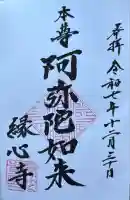 奉拝 令和二年十二月三十日
本尊
阿弥陀如来
縁心寺